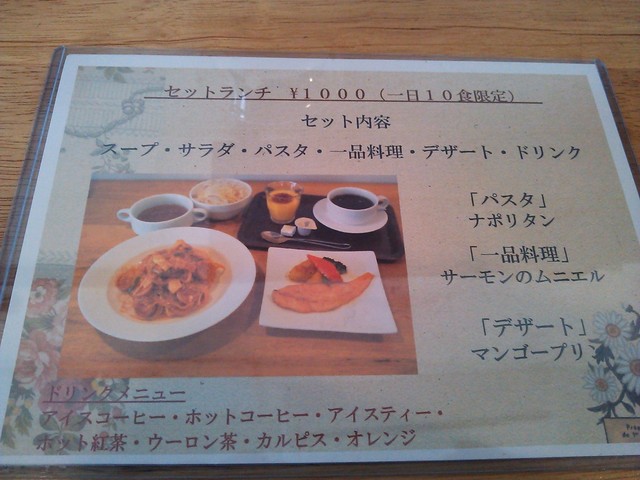 セットランチ ¥1000（一日10食限定）
セット内容
スープ・サラダ・パスタ・一品料理・デザート・ドリンク
「パスタ」
ナポリタン
「一品料理」
サーモンのムニエル
「デザート」
マンゴープリン
ドリンクメニュー
アイスコーヒー・ホットコーヒー・アイスティー・
ホット紅茶・ウーロン茶・カルピス・オレンジ